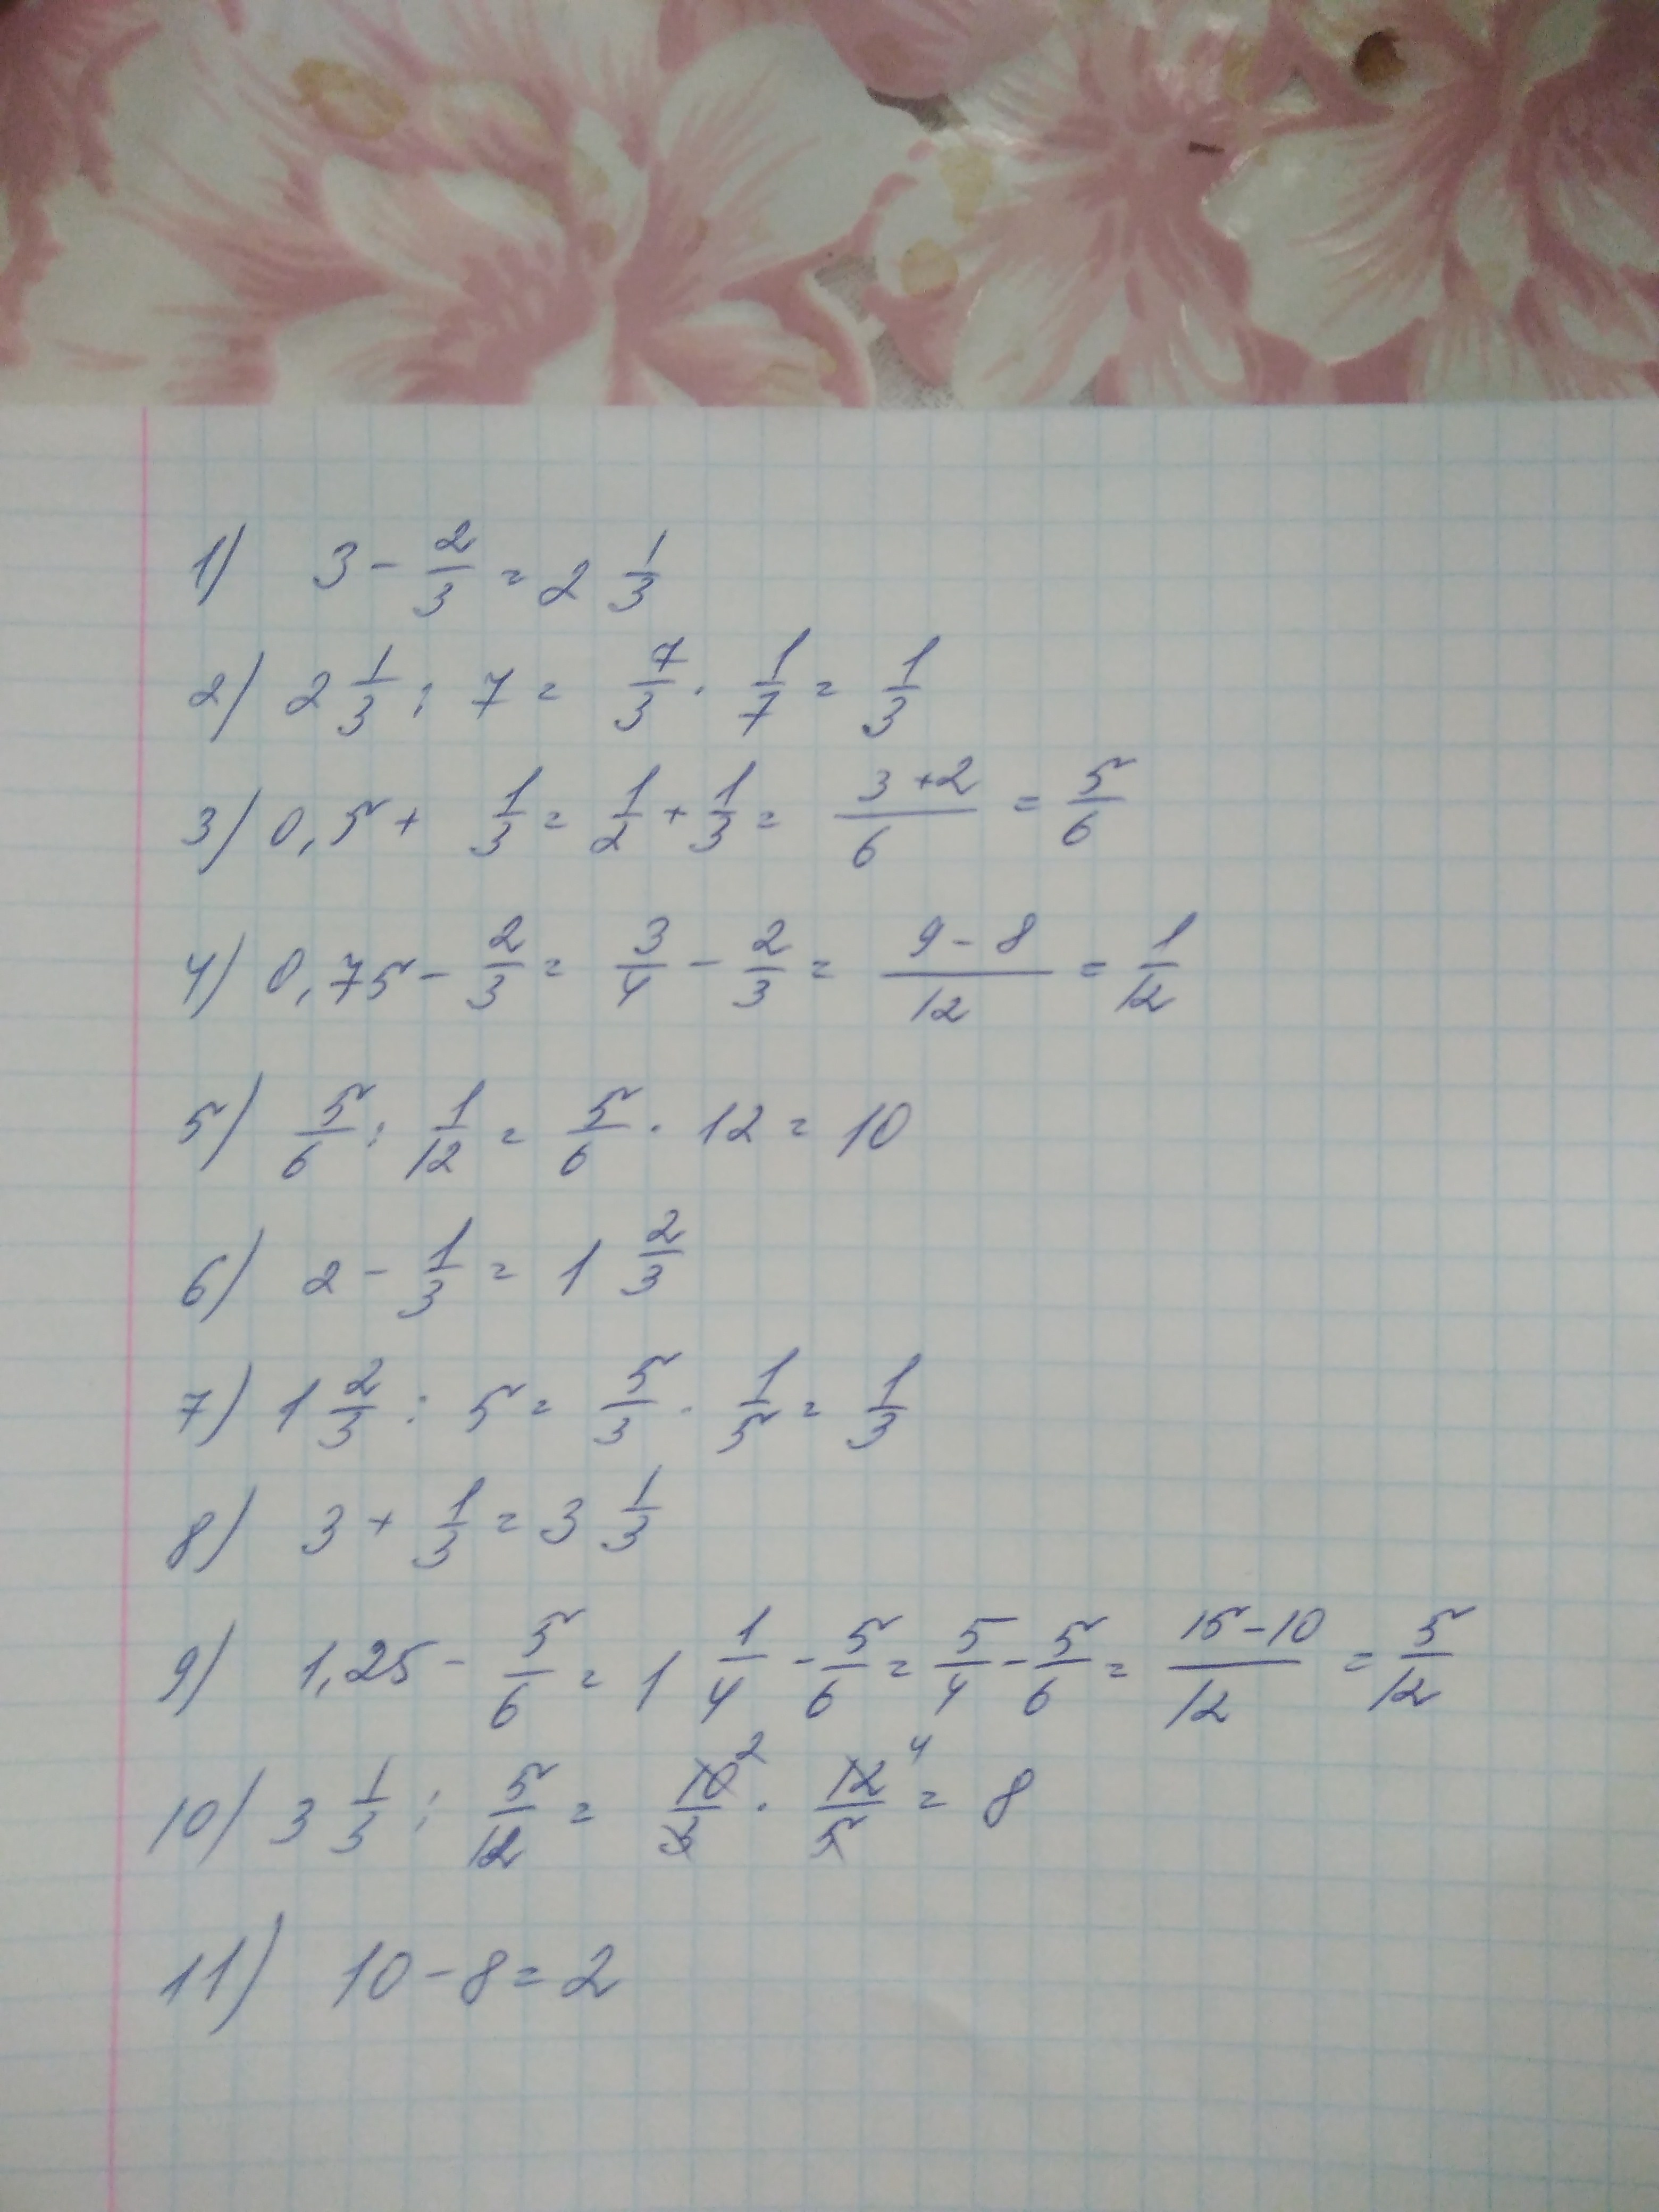 1) 3 - 2/3 = 2 1/3
2) 2 1/3 : 7 = 7/3 · 1/7 = 1/3
3) 0,5 + 1/3 = 1/2 + 1/3 = (3+2)/6 = 5/6
4) 0,75 - 2/3 = 3/4 - 2/3 = (9-8)/12 = 1/12
5) 5/6 : 1/12 = 5/6 · 12 = 10
6) 2 - 1/3 = 1 2/3
7) 1 2/3 : 5 = 5/3 · 1/5 = 1/3
8) 3 + 1/3 = 3 1/3
9) 1,25 - 5/6 = 1 1/4 - 5/6 = 5/4 - 5/6 = (15-10)/12 = 5/12
10) 3 1/3 : 5/12 = 10²/3 · 12⁴/5 = 8
11) 10 - 8 = 2